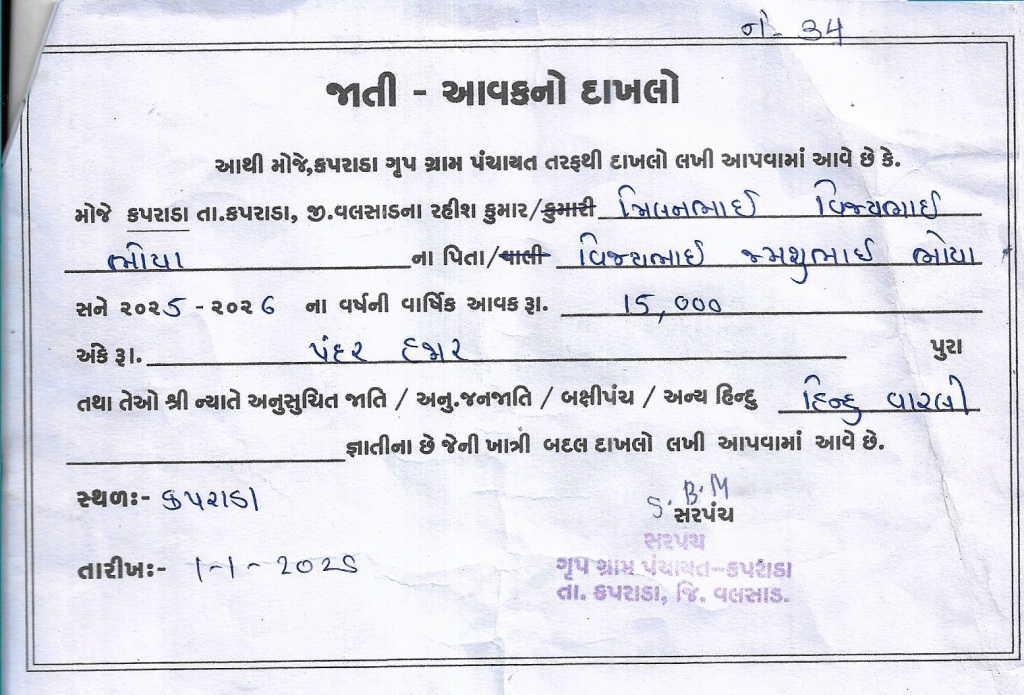 નં- 34
જાતી - આવકનો દાખલો
આથી મોજે,કપરાડા ગૃપ ગ્રામ પંચાયત તરફથી દાખલો લખી આપવામાં આવે છે કે.
મોજે કપરાડા તા.કપરાડા, જી.વલસાડના રહીશ કુમાર/કુમારી મિલનભાઈ વિજયભાઈ
ભોયા ના પિતા/વાલી વિજયભાઈ જમશુભાઈ ભોયા
સને ૨૦૨5 - ૨૦૨6 ના વર્ષની વાર્ષિક આવક રૂા. 15,000
અંકે રૂા. પંદર હજાર પુરા
તથા તેઓ શ્રી ન્યાતે અનુસુચિત જાતિ / અનુ.જનજાતિ / બક્ષીપંચ / અન્ય હિન્દુ હિન્દુ વારલી
જ્ઞાતીના છે જેની ખાત્રી બદલ દાખલો લખી આપવામાં આવે છે.
સ્થળઃ- કપરાડા
S.B.M
સરપંચ
સરપંચ
તારીખઃ- 1-1-2025
ગૃપ ગ્રામ પંચાયત-કપરાડા
તા. કપરાડા, જિ. વલસાડ.